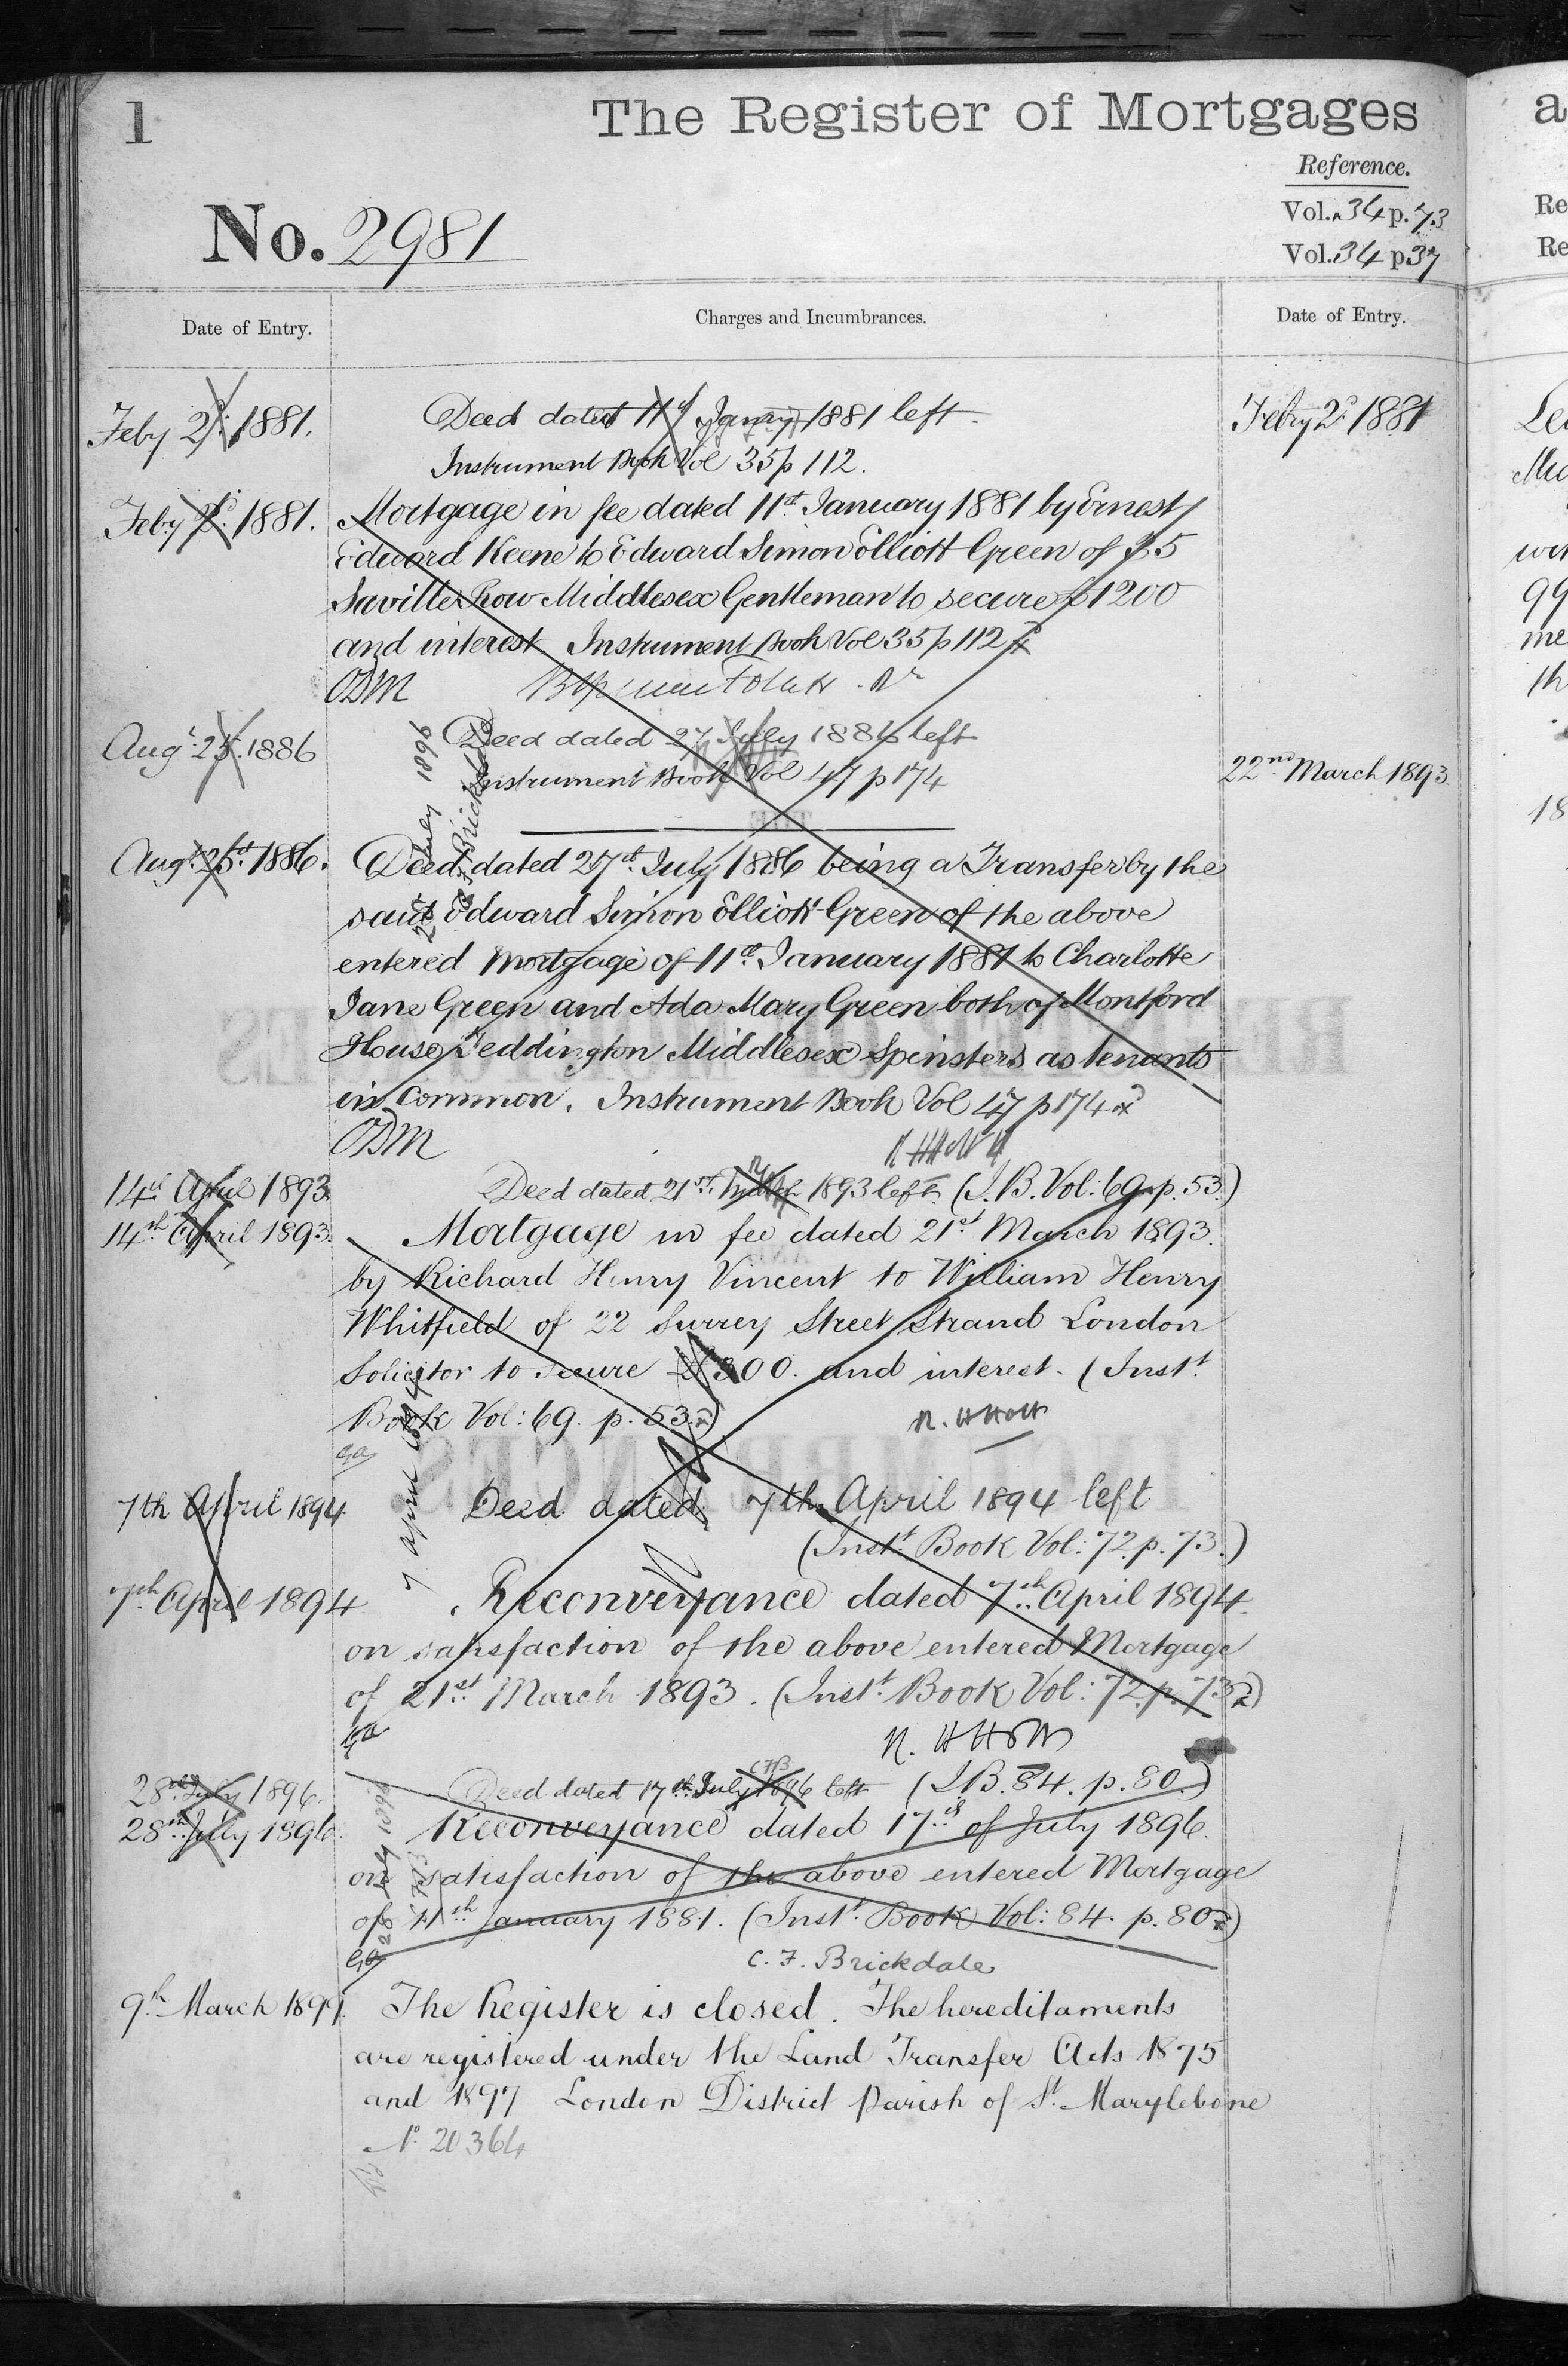 1
The Register of Mortgages
Reference.
Vol. 34 p. 73
Vol. 34 p 37
No. 2981
Date of Entry.
Charges and Incumbrances.
Date of Entry.
Feby 2d. 1881.
Deed dated 11th Janry 1881 left
Febry 2d 1881
Instrument Book Vol 35 p 112.
Feby 2d. 1881.
Mortgage in fee dated 11th January 1881 by Ernest
Edward Keene to Edward Simon Elliott Green of 35
Saville Row Middlesex Gentleman to secure £1200
and interest. Instrument Book Vol 35 p 112
ODM
Augt. 25. 1886
Deed dated 27 July 1886 left
Instrument Book Vol 47 p 174
22nd March 1893
Augt. 25th. 1886.
Deed dated 27th July 1886 being a Transfer by the
said Edward Simon Elliott Green of the above
entered Mortgage of 11th January 1881 to Charlotte
Jane Green and Ada Mary Green both of Montford
House Teddington Middlesex Spinsters as tenants
in common. Instrument Book Vol 47 p 174
ODM
14th April 1893.
Deed dated 21st. March 1893 left (I.B. Vol: 69. p. 53.)
14th April 1893.
Mortgage in fee dated 21st March 1893.
by Richard Henry Vincent to William Henry
Whitfield of 22 Surrey Street Strand London
Solicitor to secure £300. and interest. (Instt.
Book Vol: 69. p. 53.)
7th April 1894
Deed dated 7th April 1894 left
(Instt. Book Vol: 72. p. 73.)
7th April 1894
Reconveyance dated 7th April 1894.
on satisfaction of the above entered Mortgage
of 21st March 1893. (Instt. Book Vol: 72. p. 73)
28th July 1896.
Deed dated 17th July 1896 left (I.B. 84. p. 80.)
CFB
28th July 1896.
Reconveyance dated 17th of July 1896.
on satisfaction of the above entered Mortgage
of 11th January 1881. (Instt. Book Vol: 84. p. 80)
C. F. Brickdale
9th March 1899.
The Register is closed. The hereditaments
are registered under the Land Transfer Acts 1875
and 1897 London District Parish of St. Marylebone
No. 20364